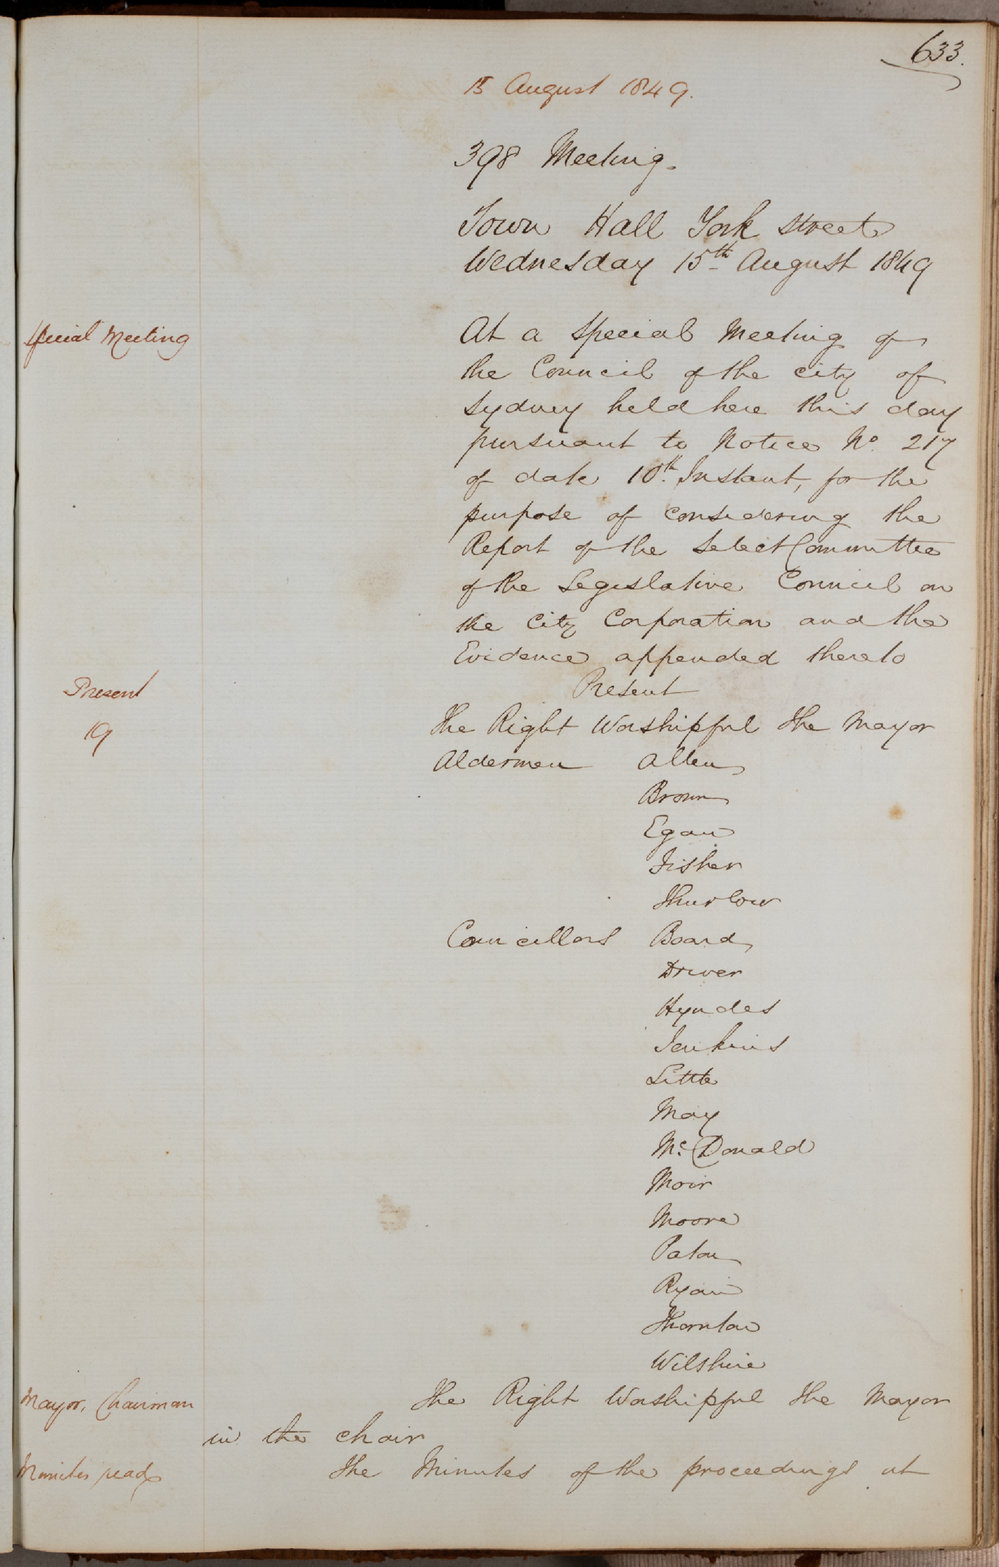 633.
15 August 1849.
398 Meeting.
Town Hall York Street
Wednesday 15th August 1849
Special Meeting
At a Special Meeting of
the Council of the City of
Sydney held here this day
pursuant to Notice No. 217
of date 10th Instant, for the
purpose of considering the
Report of the Select Committee
of the Legislative Council on
the City Corporation and the
Evidence appended thereto
Present
Present
19
The Right Worshipful The Mayor
Aldermen Allen
Brown
Egan
Fisher
Thurlow
Councillors Board
Driver
Hyndes
Jenkins
Little
May
McDonald
Moir
Moore
Paton
Ryan
Thornton
Wilshire
Mayor, Chairman
The Right Worshipful The Mayor
in the chair
Minutes read
The Minutes of the proceedings at